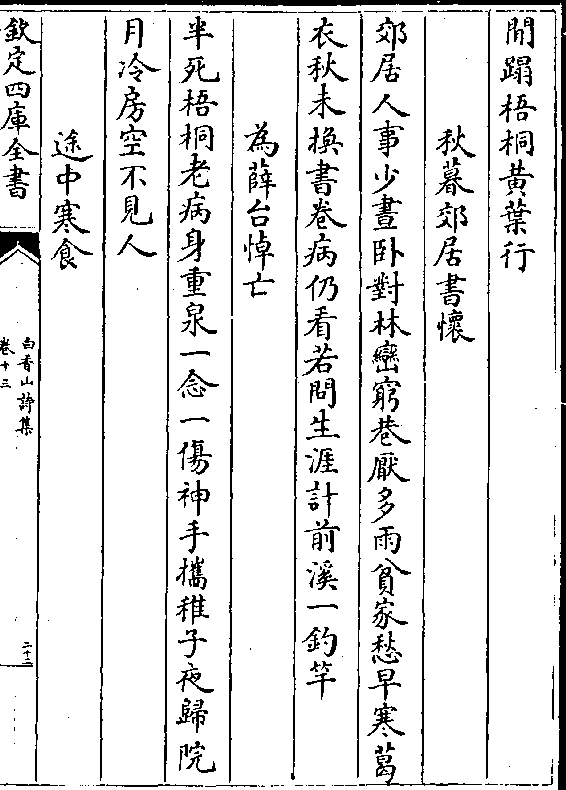 閒蹋梧桐黄葉行
秋暮郊居書懷
郊居人事少晝卧對林巒窮巷厭多雨貧家愁早寒葛
衣秋未換書卷病仍看若問生涯計前溪一釣竿
為薛台悼亡
半死梧桐老病身重泉一念一傷神手攜稚子夜歸院
月冷房空不見人
途中寒食
欽定四庫全書
白香山詩集
卷十三
二十二